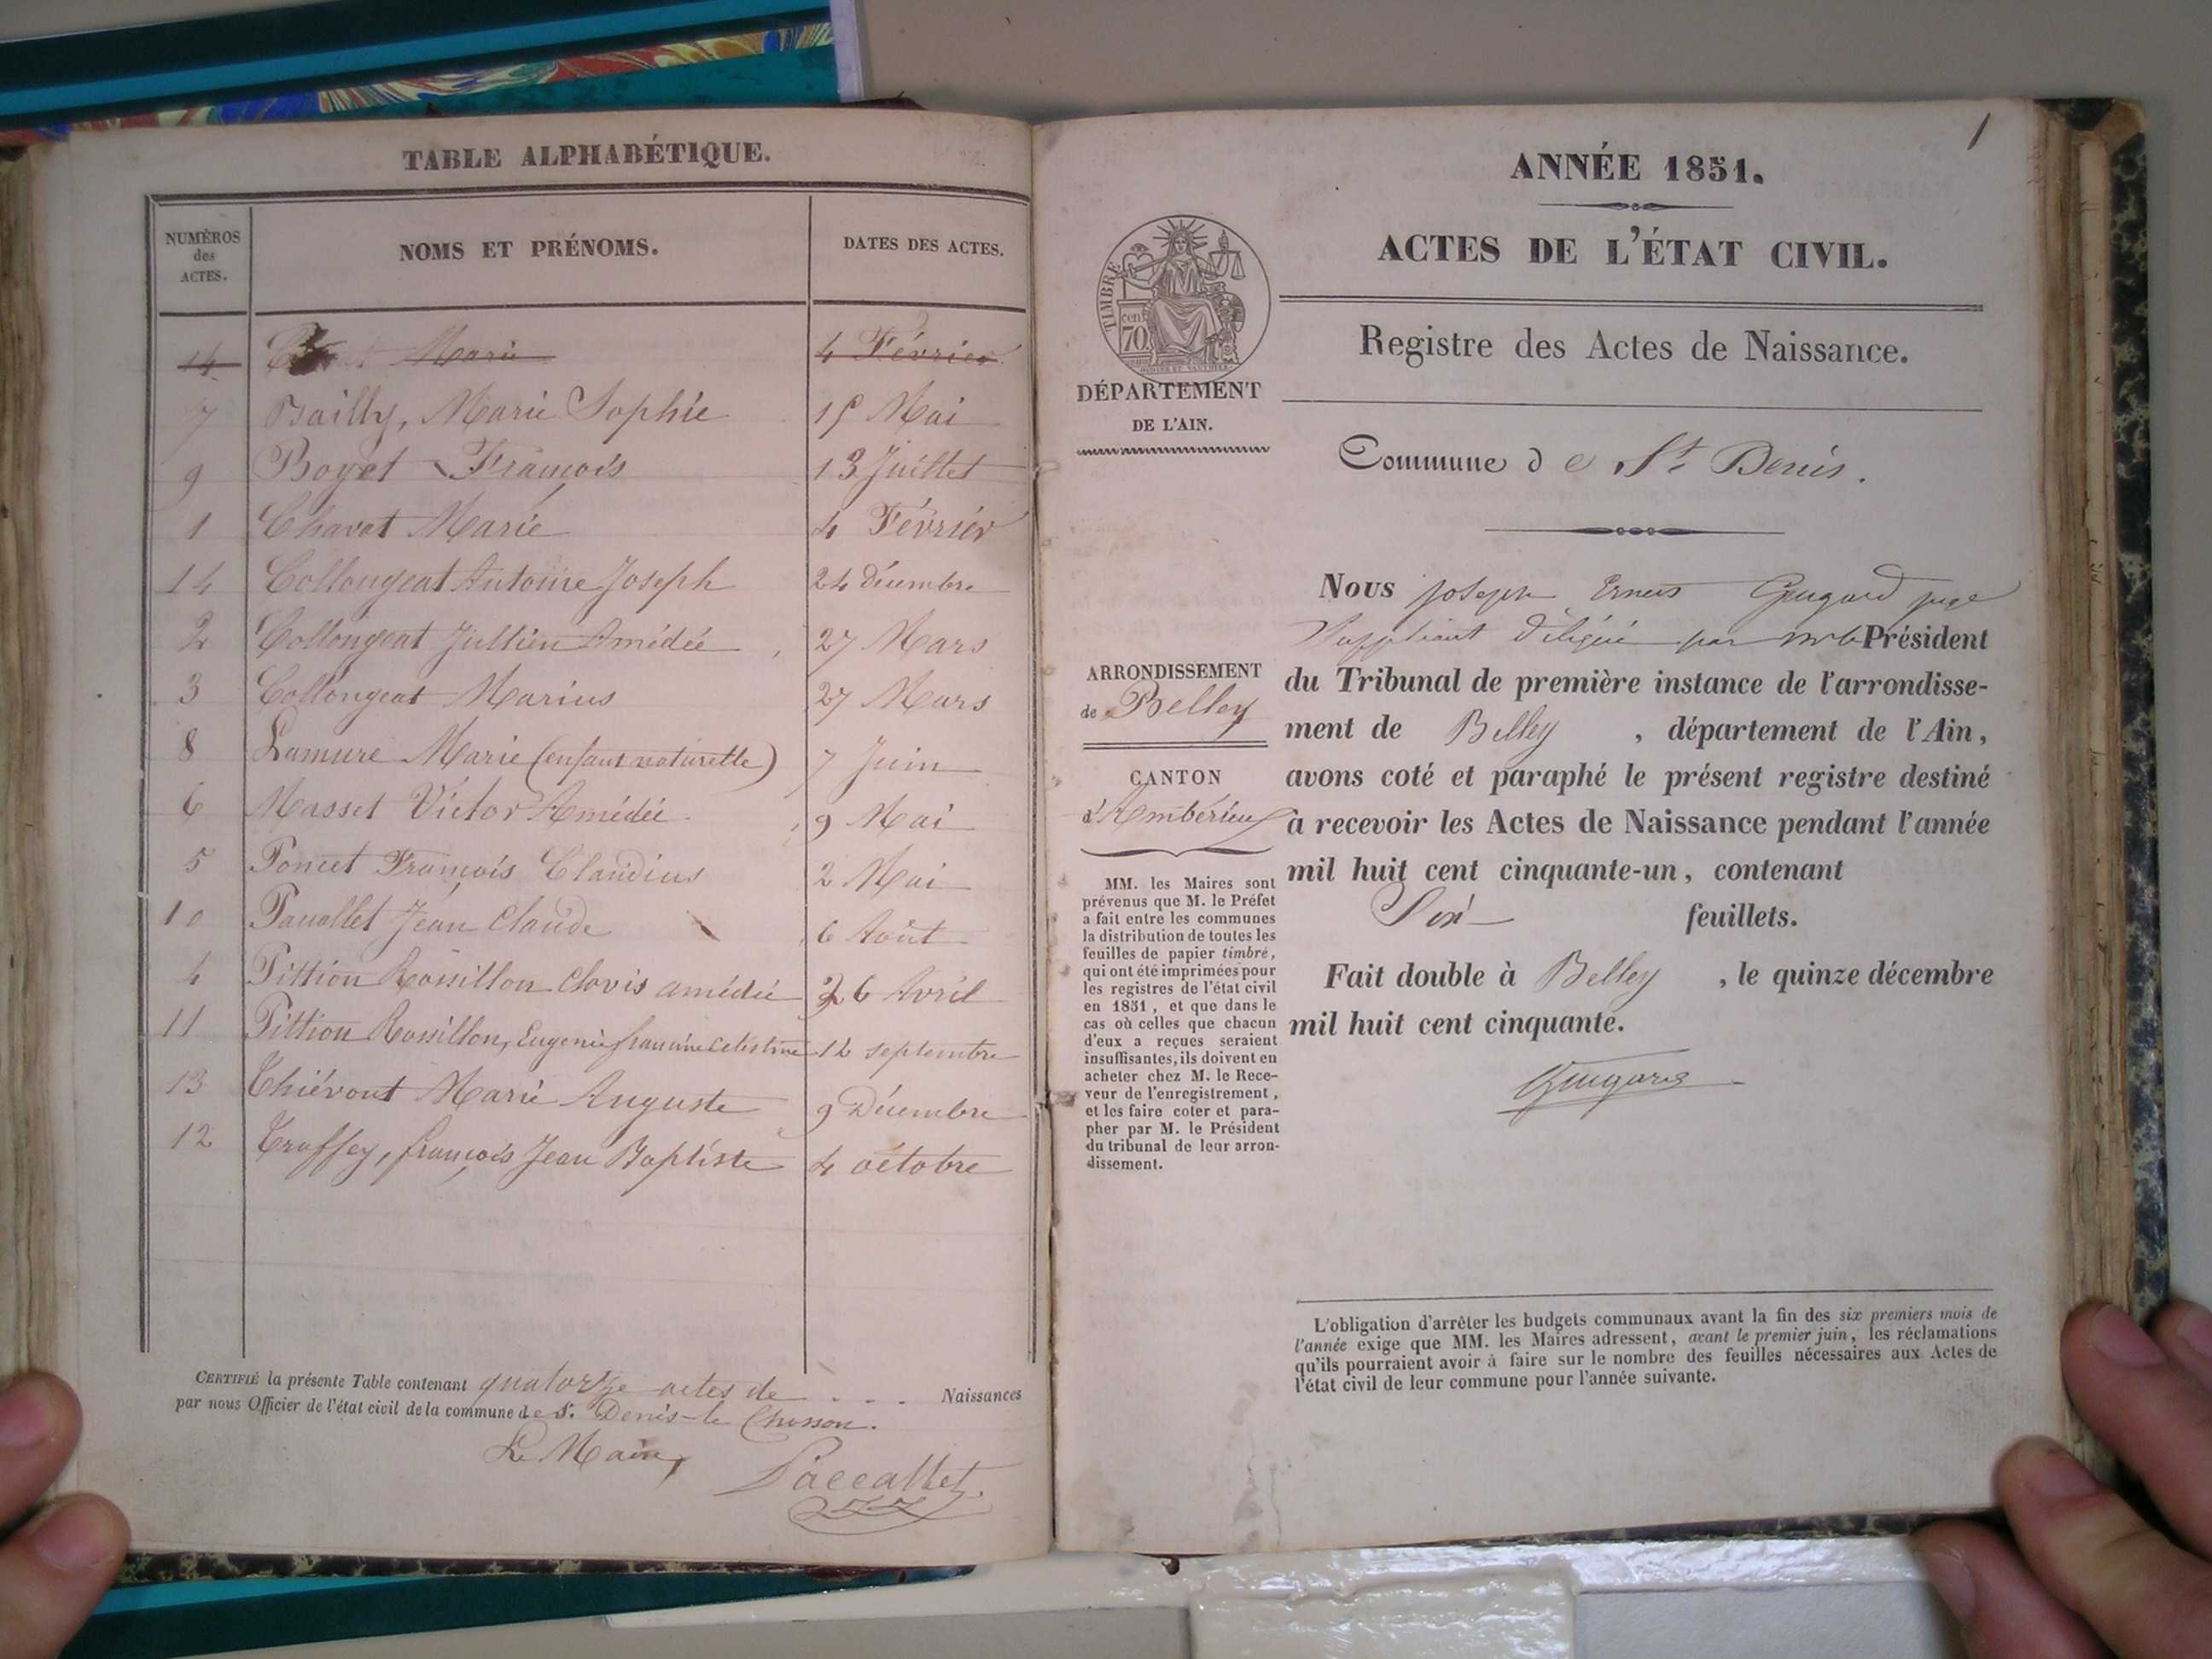 TABLE ALPHABÉTIQUE.
NUMÉROS des ACTES. NOMS ET PRÉNOMS. DATES DES ACTES.
14 Marie 4 Février
7 Bailly, Marie Sophie 15 Mai
9 Boyet François 13 Juillet
1 Chavat Marie 4 Février
14 Collongeat Antoine Joseph 24 décembre
2 Collongeat Jullien Amédée 27 Mars
3 Collongeat Marius 27 Mars
8 Lamure Marie (enfant naturelle) 7 Juin
6 Masset Victor Amédée 9 Mai
5 Poncet François Claudius 2 Mai
10 Paccallet Jean Claude 6 Août
4 Pittion Rossillon Clovis amédée 26 Avril
11 Pittion Rossillon, Eugenie francine celestine 12 septembre
13 Thiévont Marie Auguste 9 Décembre
12 Truffey, françois Jean Baptiste 4 octobre
CERTIFIÉ la présente Table contenant quatorze actes de . . . Naissances
par nous Officier de l'état civil de la commune de St. Denis-le Chosson.
Le Maire,
Paccallet.
1
ANNÉE 1851.
ACTES DE L'ÉTAT CIVIL.
TIMBRE
cen.
70
Registre des Actes de Naissance.
DÉPARTEMENT
DE L'AIN.
Commune de St. Denis.
ARRONDISSEMENT
de Belley
CANTON
d'Ambérieux
MM. les Maires sont
prévenus que M. le Préfet
a fait entre les communes
la distribution de toutes les
feuilles de papier timbré,
qui ont été imprimées pour
les registres de l'état civil
en 1851, et que dans le
cas où celles que chacun
d'eux a reçues seraient
insuffisantes, ils doivent en
acheter chez M. le Rece-
veur de l'enregistrement,
et les faire coter et para-
pher par M. le Président
du tribunal de leur arron-
dissement.
Nous joseph Ernest juge
Suppléant délégué par Mr le Président
du Tribunal de première instance de l'arrondisse-
ment de Belley , département de l'Ain,
avons coté et paraphé le présent registre destiné
à recevoir les Actes de Naissance pendant l'année
mil huit cent cinquante-un, contenant
Six feuillets.
Fait double à Belley , le quinze décembre
mil huit cent cinquante.
L'obligation d'arrêter les budgets communaux avant la fin des six premiers mois de
l'année exige que MM. les Maires adressent, avant le premier juin, les réclamations
qu'ils pourraient avoir à faire sur le nombre des feuilles nécessaires aux Actes de
l'état civil de leur commune pour l'année suivante.